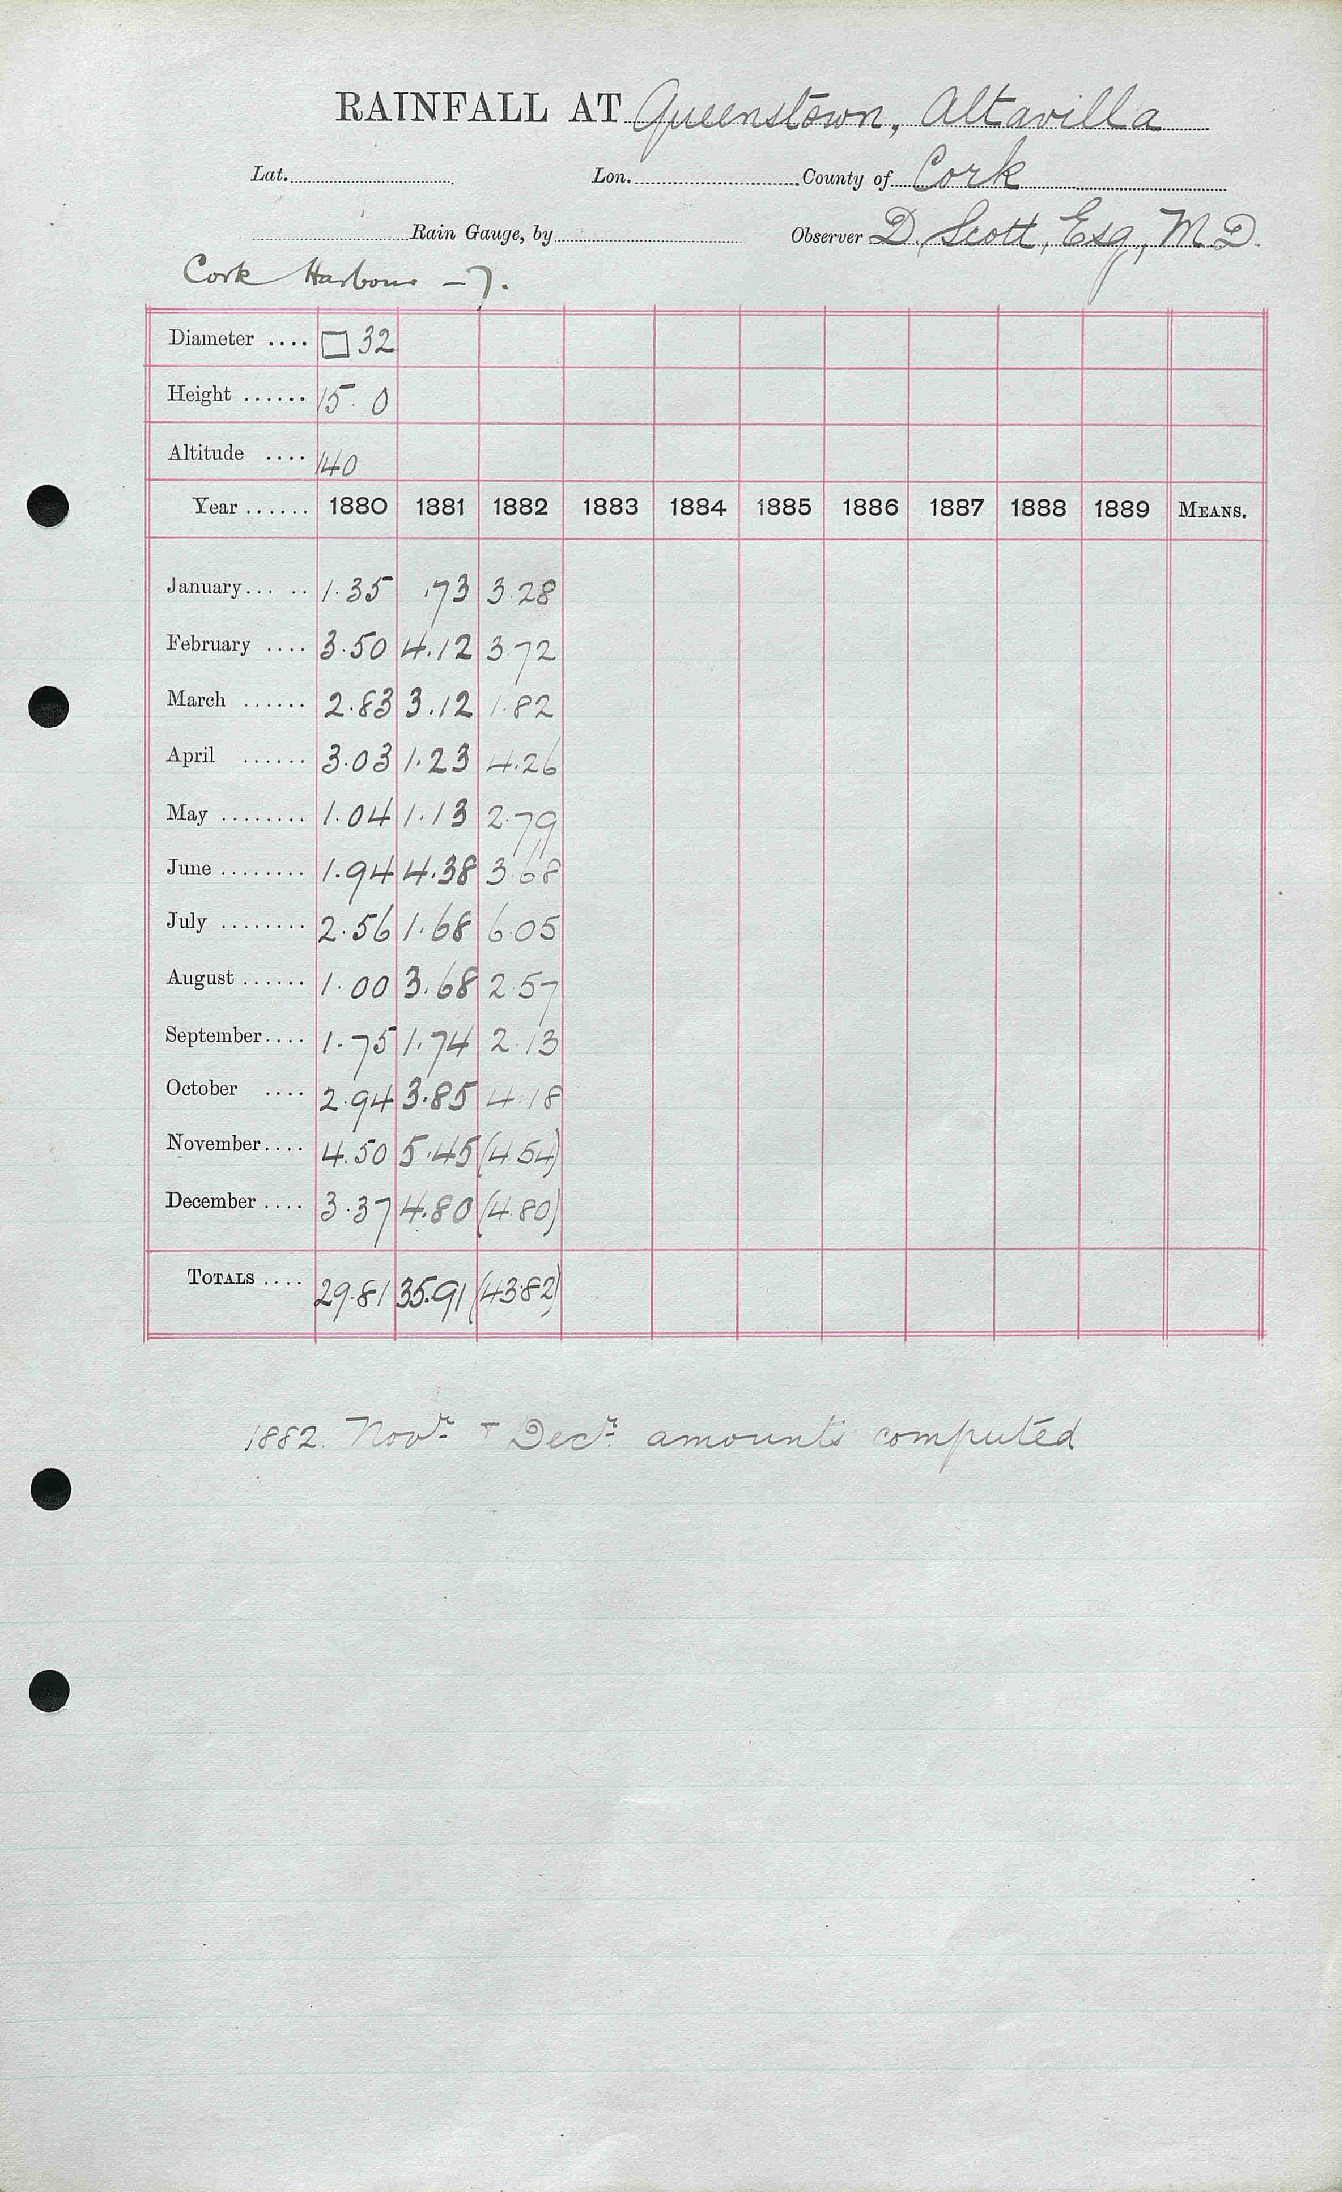 RAINFALL AT Queenstown, Altavilla
Lat. Lon. County of Cork
Rain Gauge, by Observer D. Scott, Esq, M.D.
Cork Harbour - 7.
Diameter .... □ 32
Height ...... 15. 0
Altitude .... 140
Year ...... 1880 1881 1882 1883 1884 1885 1886 1887 1888 1889 MEANS.
January... .. 1.35 .73 3.28
February .... 3.50 4.12 3.72
March ...... 2.83 3.12 1.82
April ...... 3.03 1.23 4.26
May ........ 1.04 1.13 2.79
June ........ 1.94 4.38 3.68
July ........ 2.56 1.68 6.05
August ...... 1.00 3.68 2.57
September.... 1.75 1.74 2.13
October .... 2.94 3.85 4.18
November.... 4.50 5.45 (4.54)
December .... 3.37 4.80 (4.80)
TOTALS .... 29.81 35.91 (43.82)
1882. Novr. + Decr. amounts computed